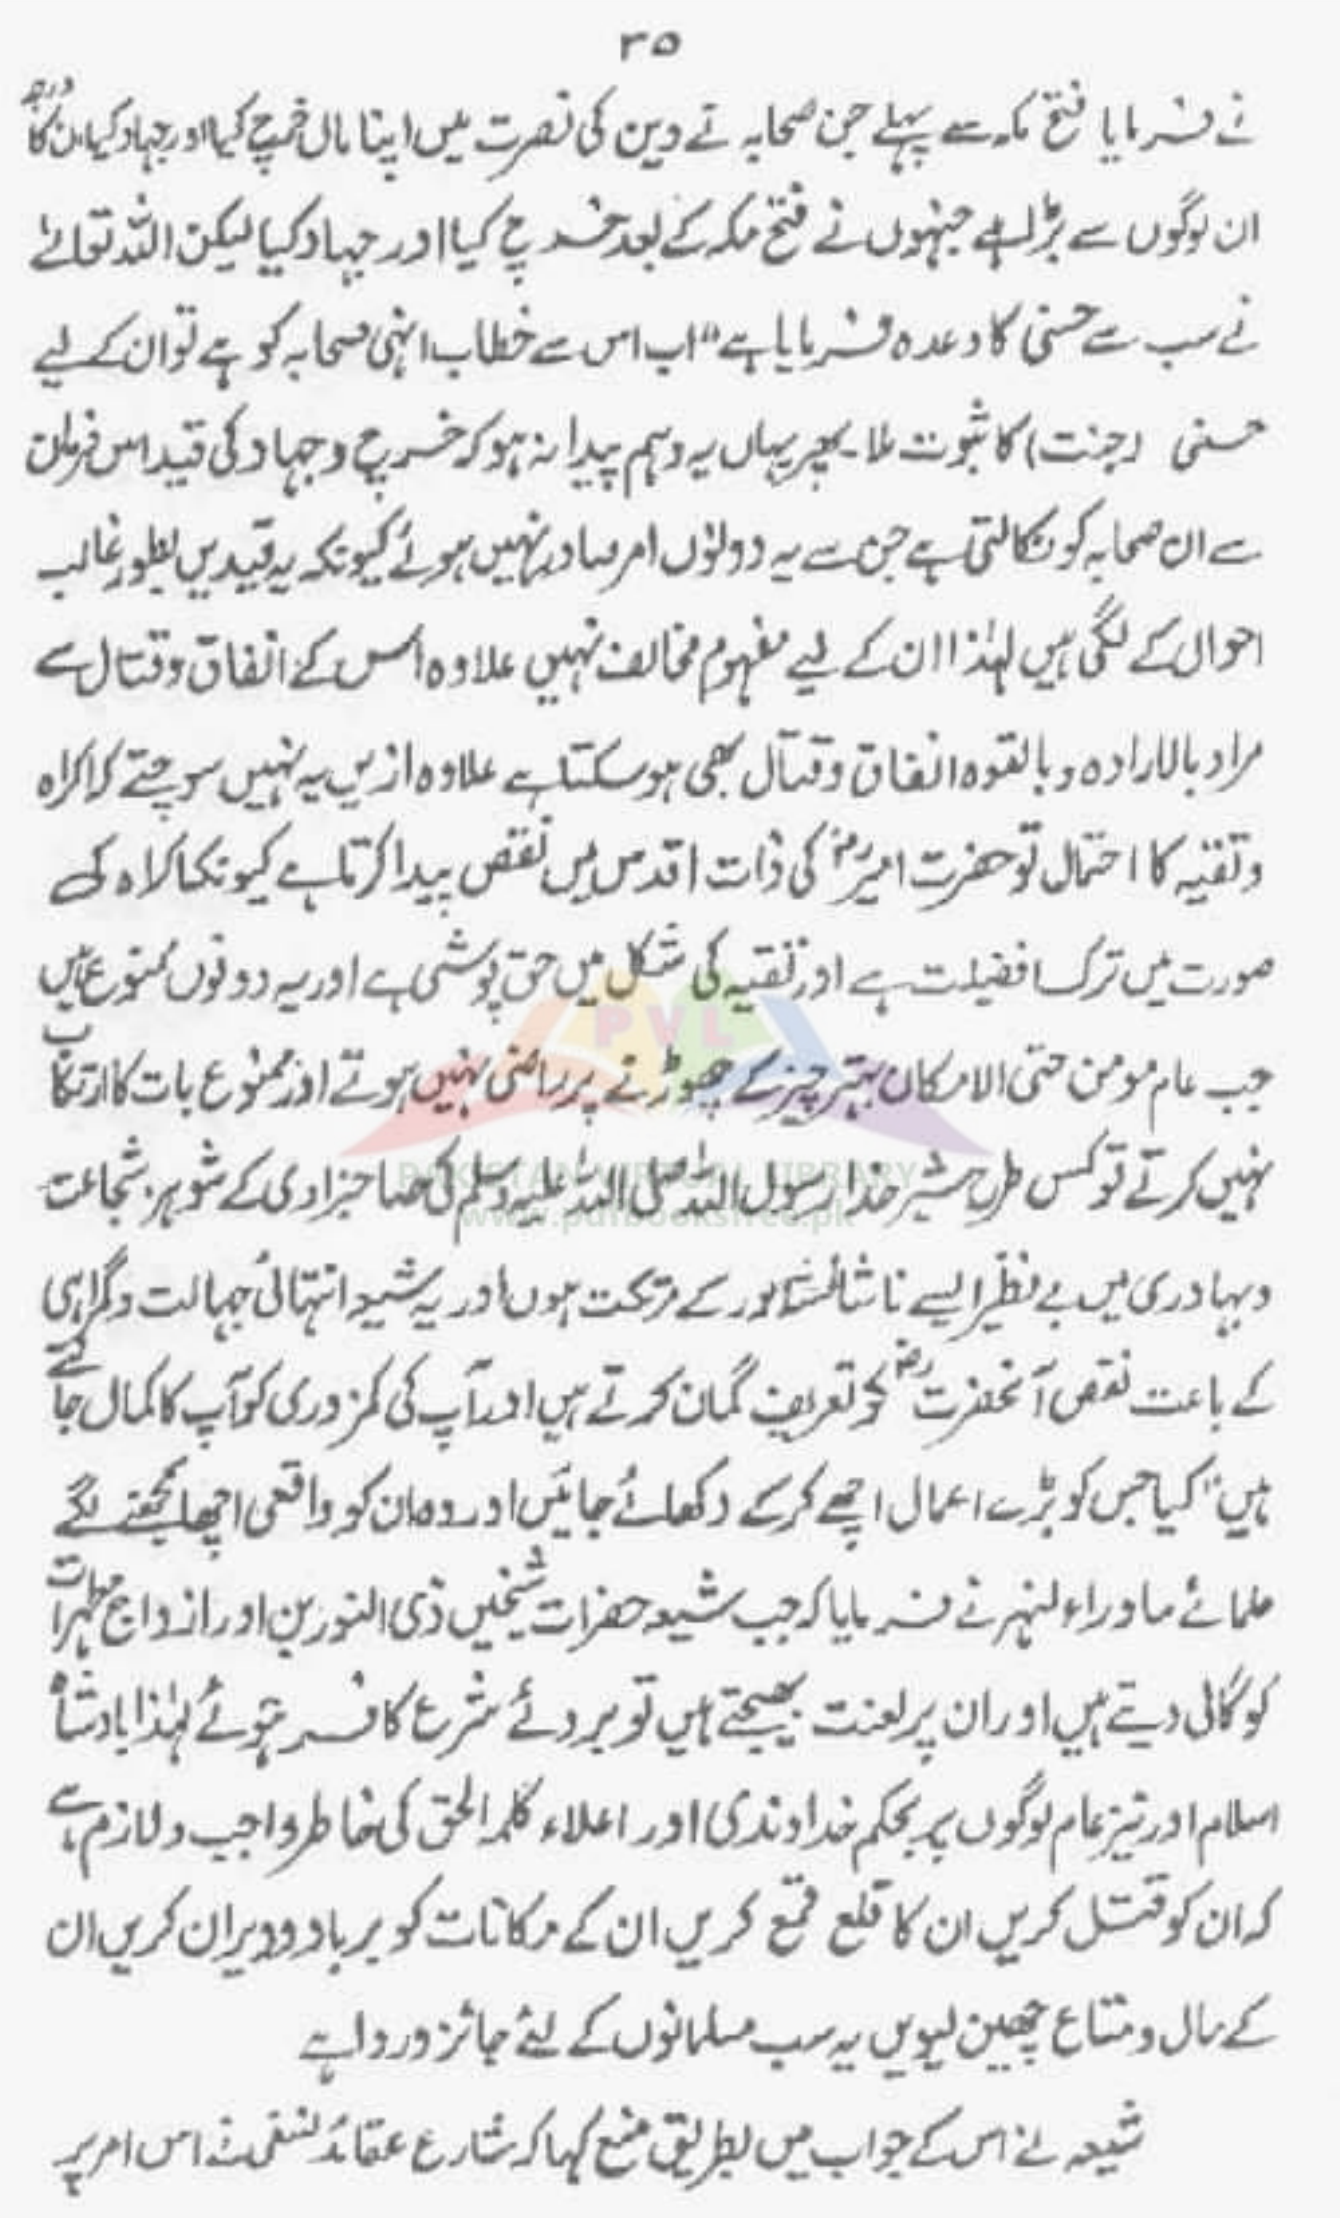 ۳۵
نے فرمایا فتح مکہ سے پہلے جن صحابہ نے دین کی نصرت میں اپنا مال خرچ کیا اور جہاد کیا ان کا درجہ
ان لوگوں سے بڑا ہے جنہوں نے فتح مکہ کے بعد خرچ کیا اور جہاد کیا لیکن اللہ تعالےٰ
نے سب سے حسنی کا وعدہ فرمایا ہے" اب اس سے خطاب انہی صحابہ کو ہے تو ان کے لیے
حسنی (جنت) کا ثبوت ملا۔ پھر یہاں یہ وہم پیدا نہ ہو کہ خرچ و جہاد کی قید اس فرمان
سے ان صحابہ کو نکالتی ہے جن سے یہ دونوں امر صادر نہیں ہوئے کیونکہ یہ قیدیں بطور غالب
احوال کے لگی ہیں لہٰذا ان کے لیے مفہوم مخالف نہیں علاوہ اس کے انفاق و قتال سے
مراد بالارادہ و بالقوہ انفاق و قتال بھی ہو سکتا ہے علاوہ ازیں یہ نہیں سوچتے کہ اکراہ
و تقیہ کا احتمال تو حضرت امیرؓ کی ذات اقدس میں نقص پیدا کرتا ہے کیونکہ اکراہ کی
صورت میں ترک افضیلت ہے اور تقیہ کی شکل میں حق پوشی ہے اور یہ دونوں ممنوع ہیں
جب عام مومن حتی الامکان بہتر چیز کے چھوڑنے پر راضی نہیں ہوتے اور ممنوع بات کا ارتکاب
نہیں کرتے تو کس طرح شیر خدا رسول اللہ صلی اللہ علیہ وسلم کی صاحبزادی کے شوہر، شجاعت
و بہادری میں بے نظیر ایسے ناشائستہ امور کے مرتکب ہوں اور یہ شیعہ انتہائی جہالت و گمراہی
کے باعث نقص آنحضرتؓ کو تعریف گمان کرتے ہیں اور آپ کی کمزوری کو آپ کا کمال جانتے
ہیں" کیا جس کو بڑے اعمال اچھے کرکے دکھائے جائیں اور وہ ان کو واقعی اچھا سمجھنے لگے
علمائے ماوراء النہر نے فرمایا کہ جب شیعہ حضرات شیخین ذی النورین اور ازواج مطہرات
کو گالی دیتے ہیں اور ان پر لعنت بھیجتے ہیں تو بروئے شرع کافر ہوئے لہٰذا بادشاہ
اسلام اور نیز عام لوگوں پر بحکم خداوندی اور اعلاء کلمہ الحق کی خاطر واجب و لازم ہے
کہ ان کو قتل کریں ان کا قلع قمع کریں ان کے مکانات کو برباد و ویران کریں ان
کے مال و متاع چھین لیویں یہ سب مسلمانوں کے لئے جائز و روا ہے
شیعہ نے اس کے جواب میں بطریق منع کہا کہ شارع عقائد نسفی نے اس امر پر
PVL
PAKISTAN VIRTUAL LIBRARY
www.pdfbooksfree.pk